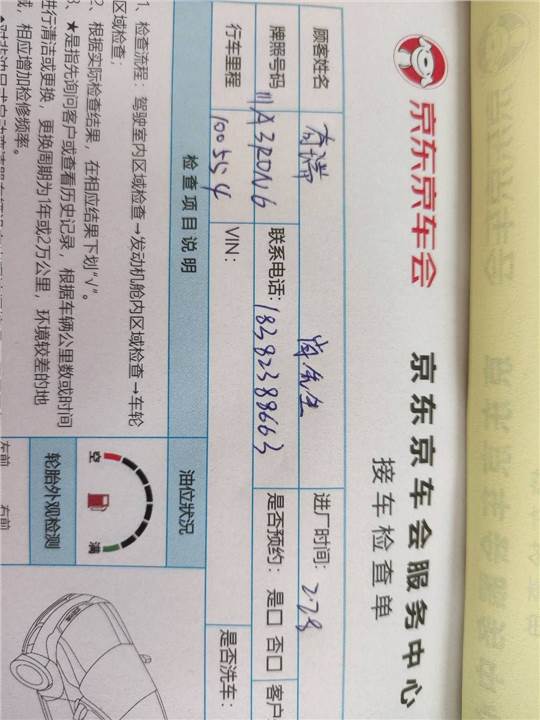 京东京车会 京东京车会服务中心
接车检查单
顾客姓名 奇瑞 肖先生 进厂时间: 2.28
牌照号码 川A3R0N6 联系电话: 18382388663 是否预约: 是□ 否□ 客户
行车里程 100554 VIN: 是否洗车:
检查项目说明 油位状况
1、检查流程: 驾驶室内区域检查→发动机舱内区域检查→车轮
区域检查;
2、根据实际检查结果, 在相应结果下划“√”。
3、★是指先询问客户或查看历史记录, 根据车辆公里数或时间
进行清洁或更换, 更换周期为1年或2万公里, 环境较差的地
域, 相应增加检修频率。
空 满
轮胎外观检测
左前 右前